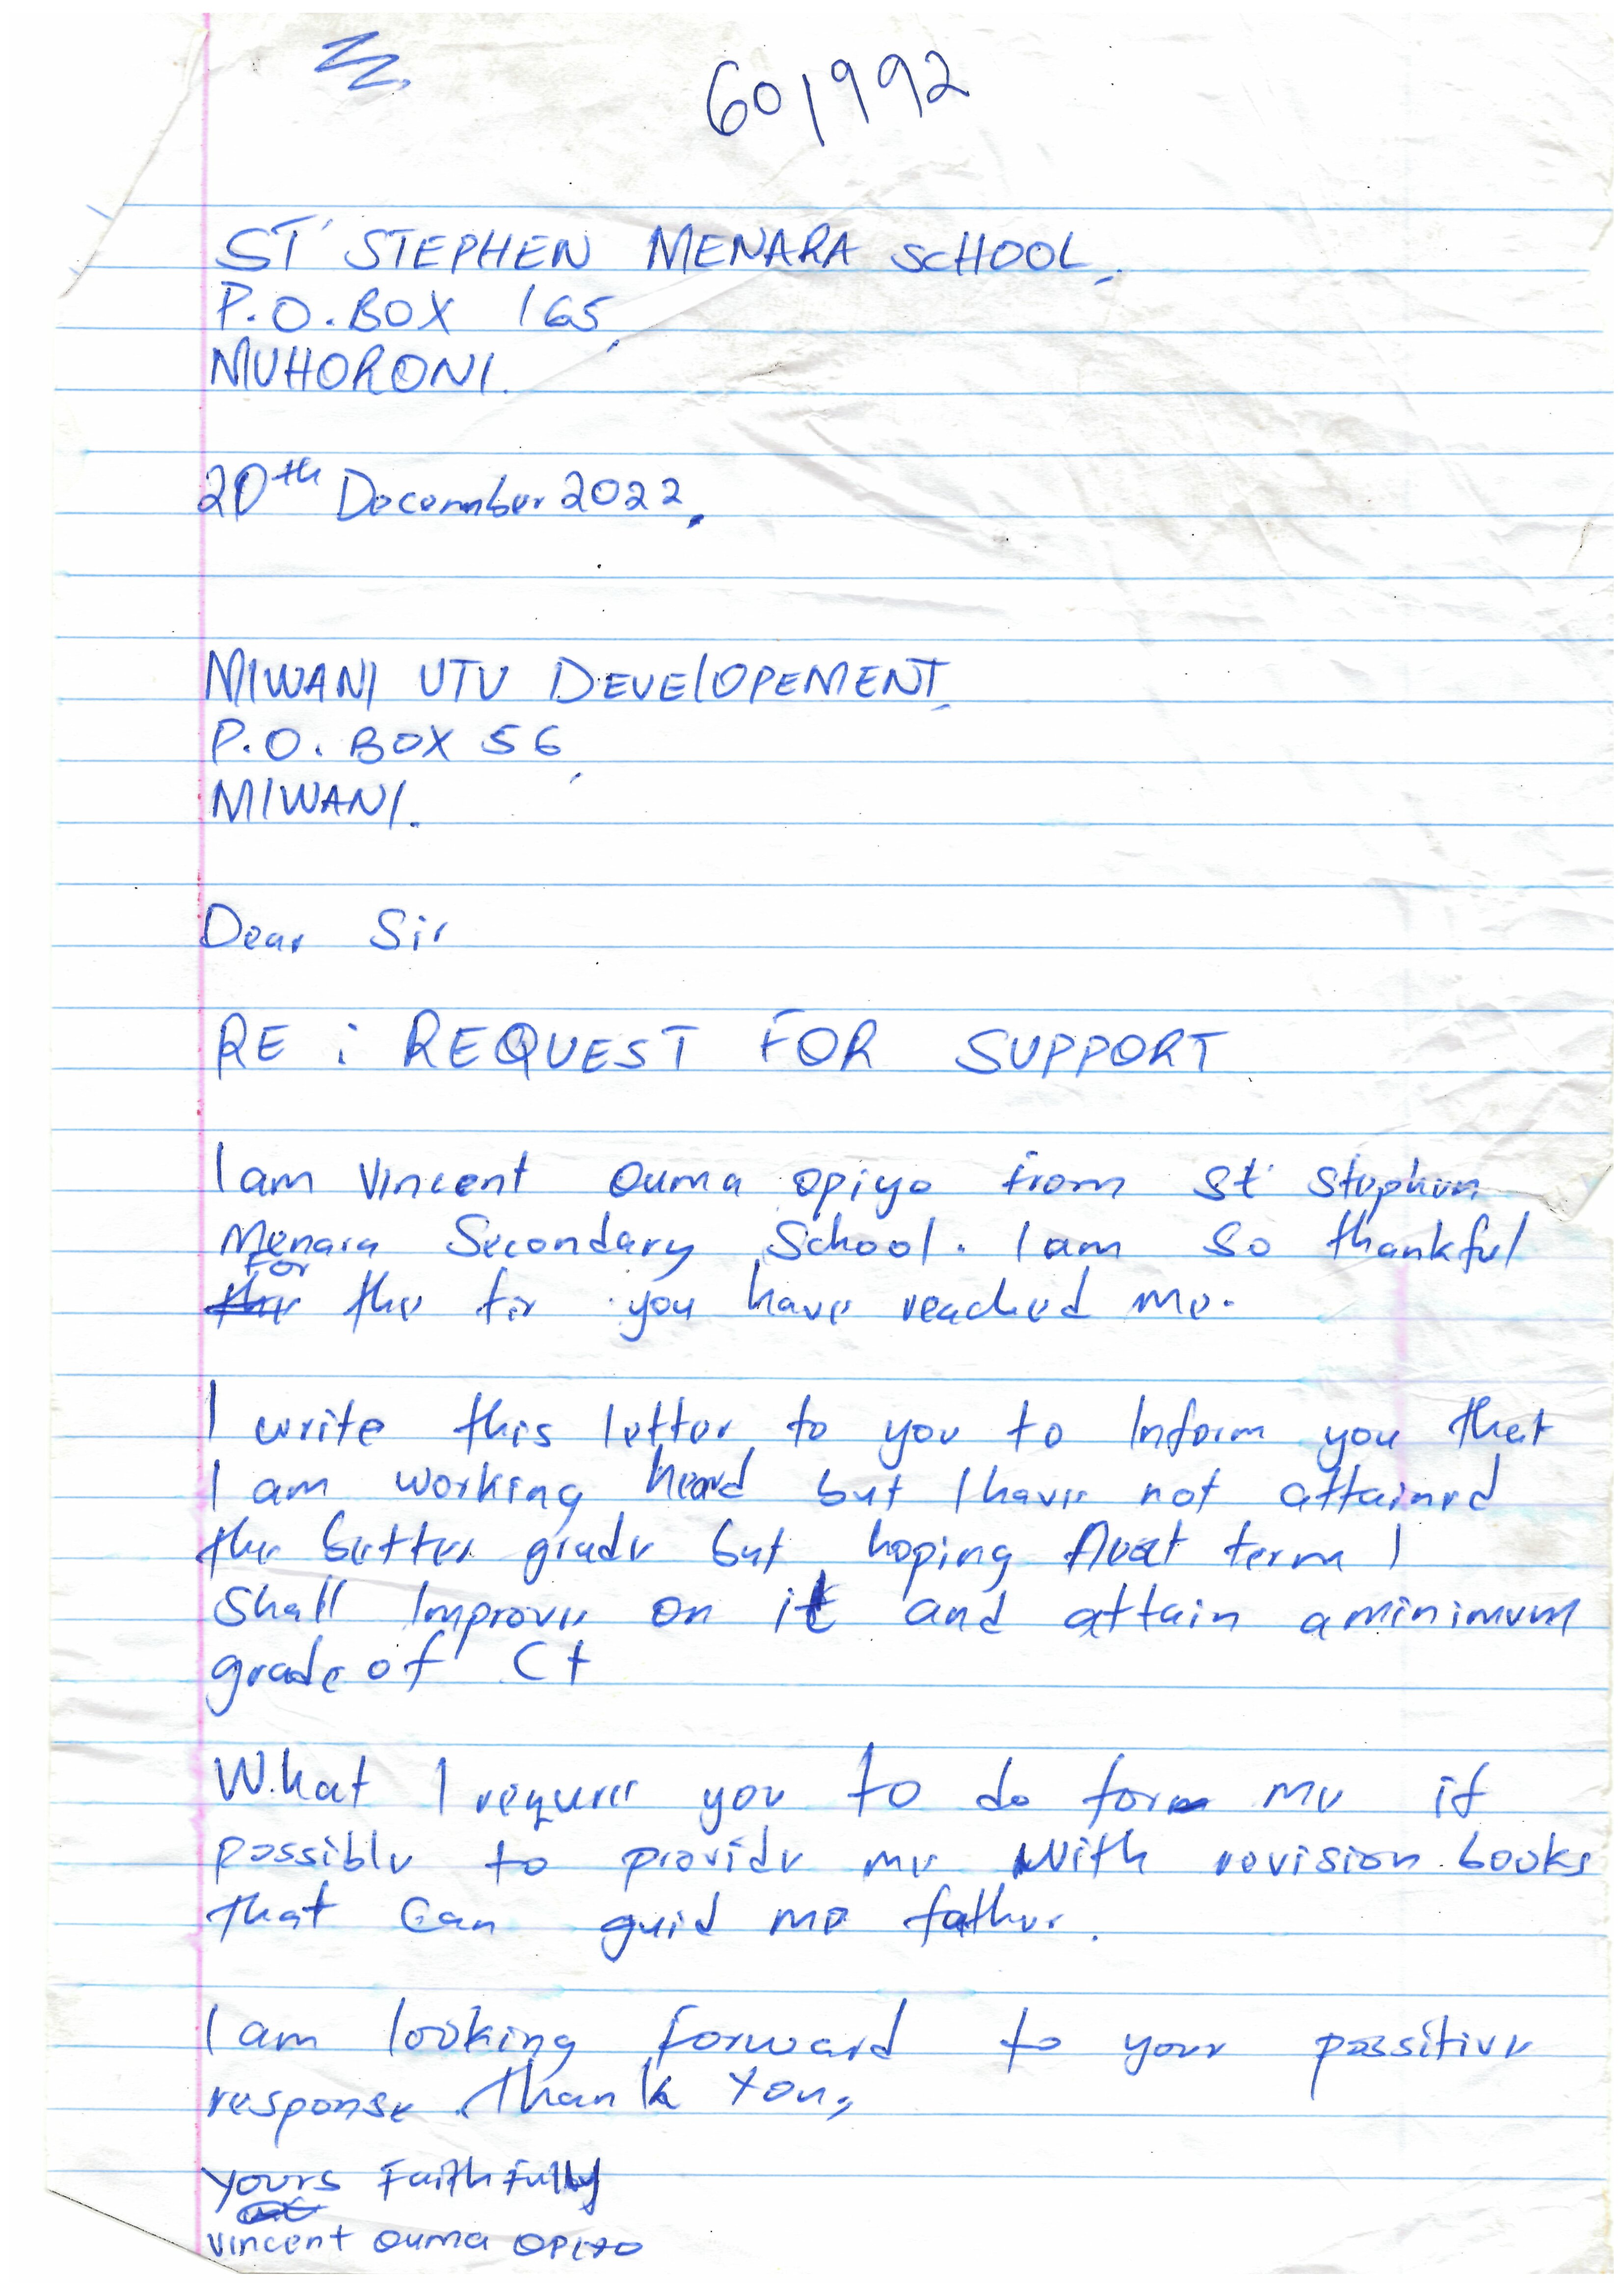 601992
ST STEPHEN MENARA SCHOOL,
P.O. BOX 165,
MUHORONI.
20th December 2022,
MIWANI UTU DEVELOPEMENT,
P.O. BOX 56,
MIWANI.
Dear Sir
RE : REQUEST FOR SUPPORT
I am Vincent Ouma Opiyo from St Stephen
Menara Secondary School. I am so thankful
For
the fir you have reached me.
I write this letter to you to Inform you that
I am working heard but I have not attained
the better grade but hoping Next term I
Shall Improve on it and attain a minimum
grade of C+
What I require you to do for me if
possible to provide me With revision books
that Can guid me father.
I am looking forward to your possitive
response. Thank You,
Yours Faithfully
Vincent Ouma Opiyo